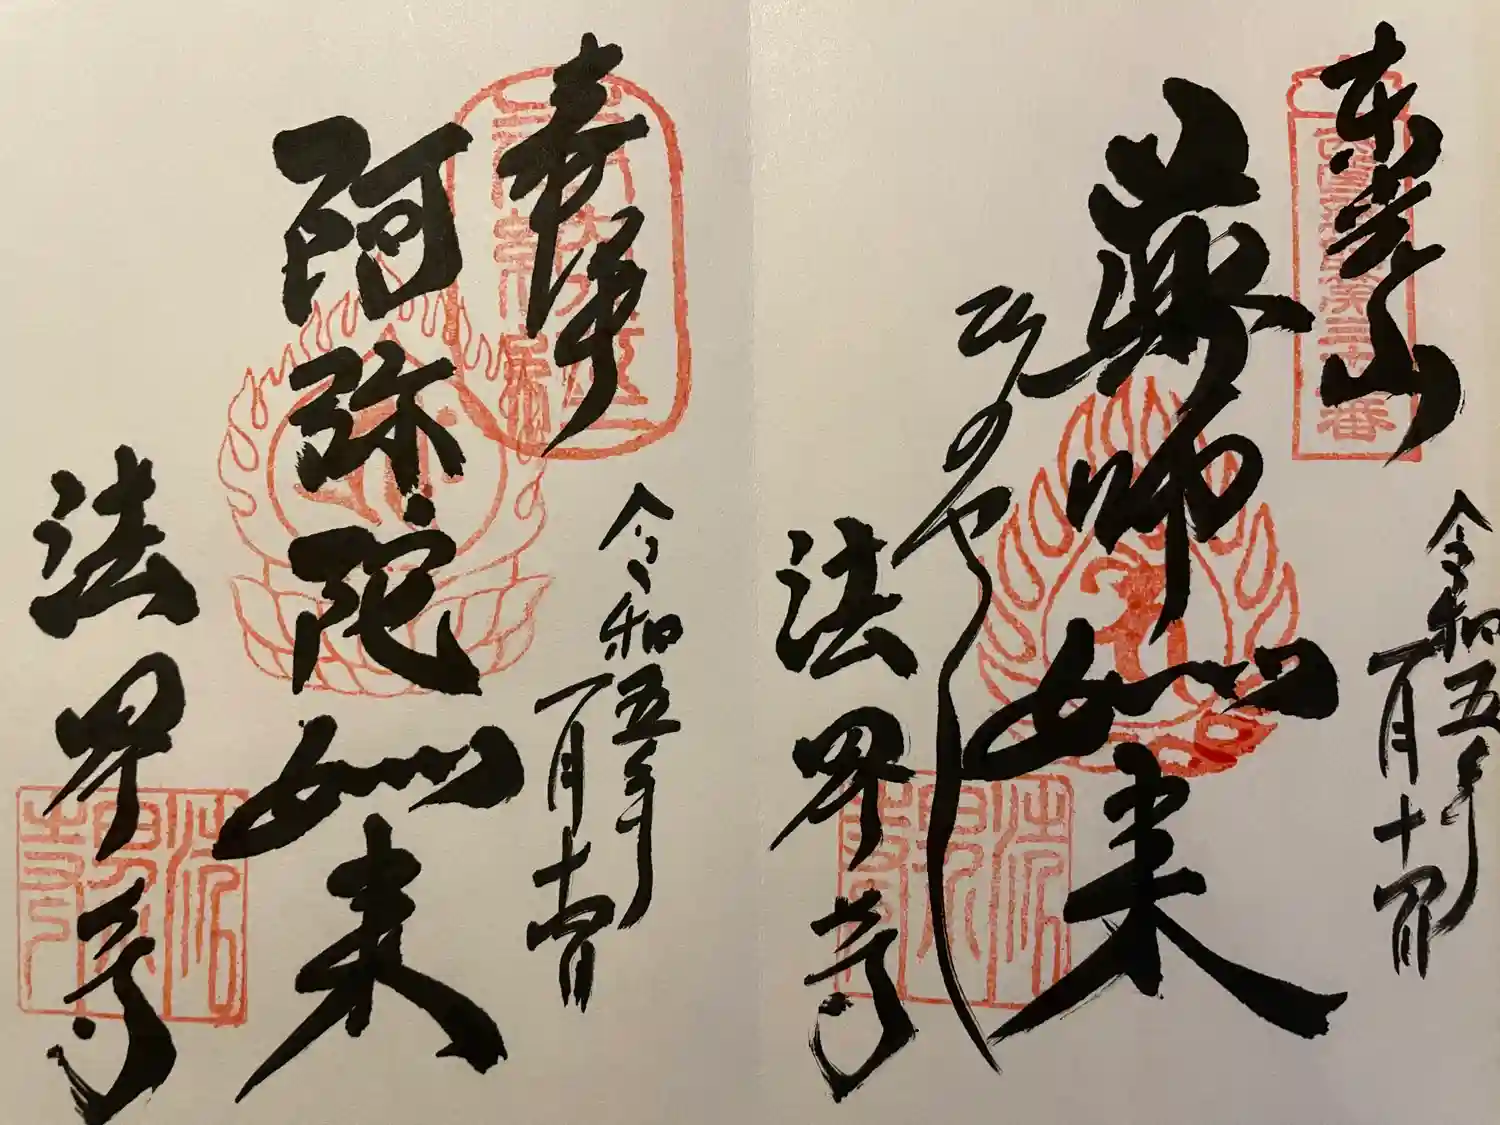 東光山
令和五年
一月十
薬師如来
ひのやくし
法界寺
法界寺
奉拝
令和五年
一月十
阿弥陀如来
法界寺
法界寺